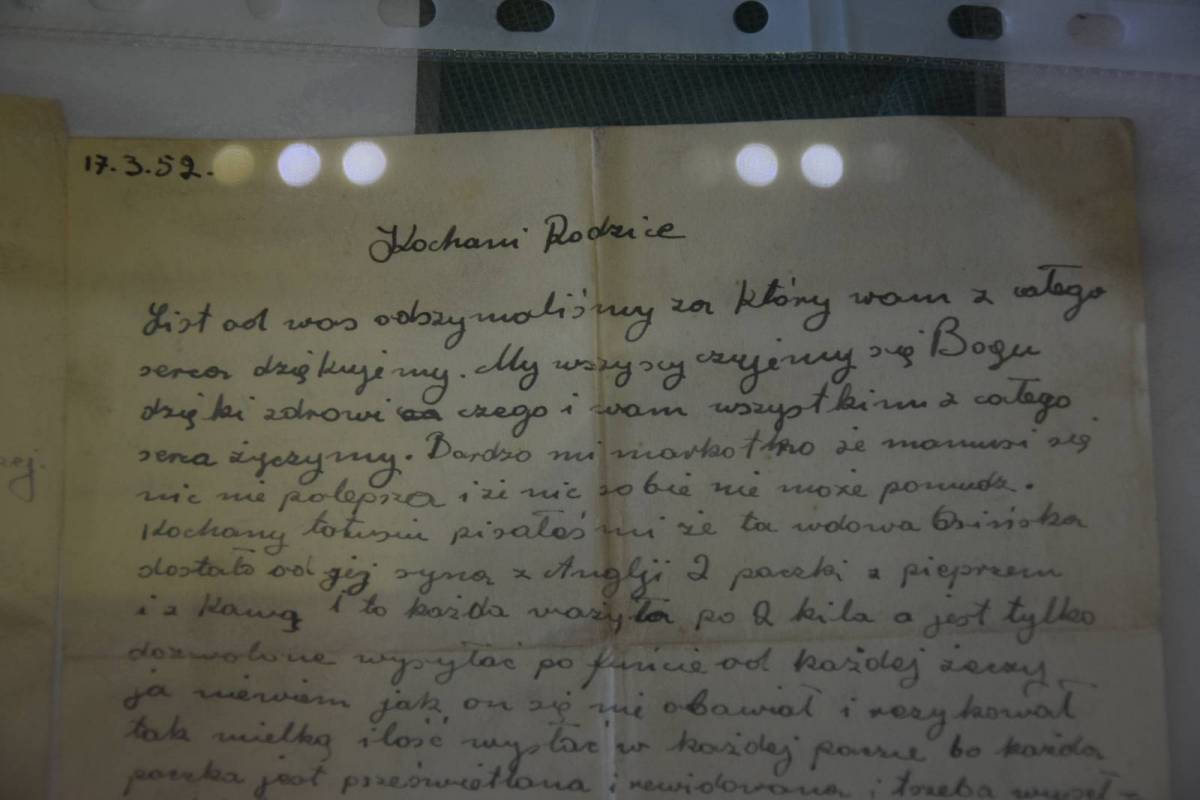 17.3.52.
Kochani Rodzice
List od was odszymaliśmy za który wam z całego
serca dziękujemy. My wszyscy czujemy się Bogu
dzięki zdrowi czego i wam wszystkim z całego
serca życzymy. Bardzo mi markotno że mamusi się
nic nie polepsza i że nic sobie nie może pomudz.
Kochany tatusiu pisałoś mi że ta wdowa Osińska
dostała od jej syna z Anglji 2 paczki z pieprzem
i z Kawą i to każda ważyła po 2 kila a jest tylko
dozwolone wysyłać po funcie od każdej żeczy
ja niewiem jak on się nie obawiał i rezykował
tak wielką ilość wysłać w każdej paczce bo każda
paczka jest prześwietlana i rewidowana i trzeba
zej.